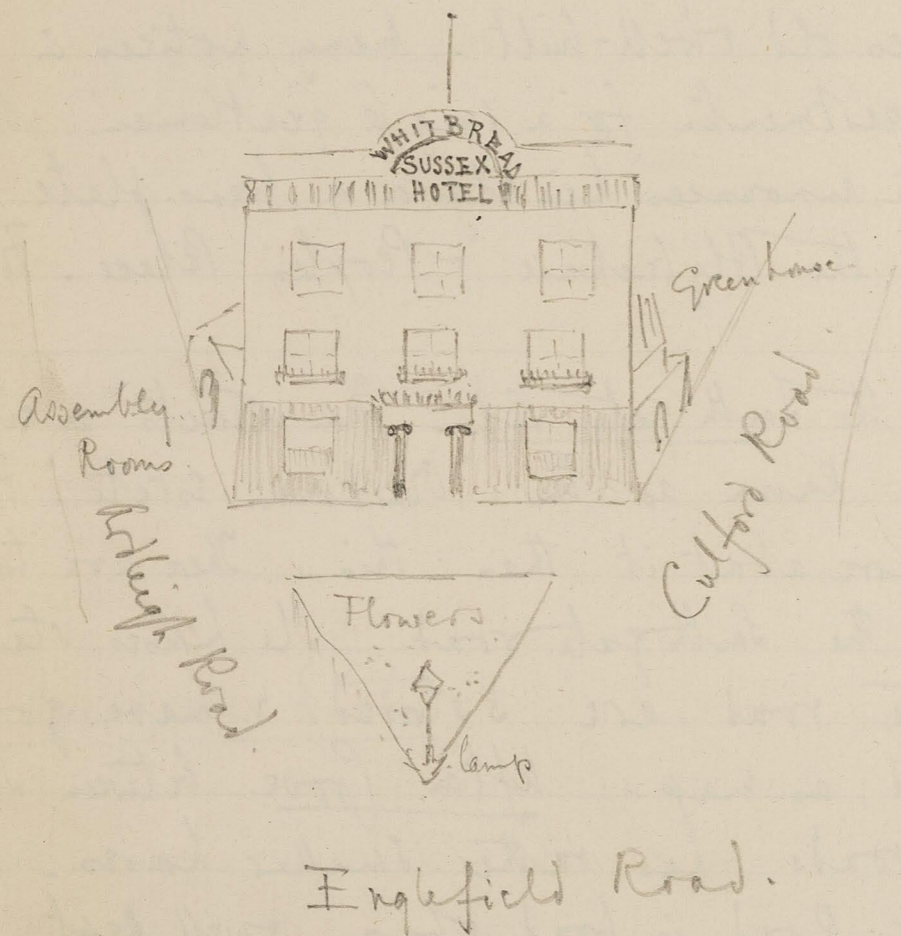 WHITBREAD
SUSSEX
HOTEL
Greenhouse
Assembly
Rooms
Ardleigh Road.
Culford Road.
Flowers
lamp
Englefield Road.